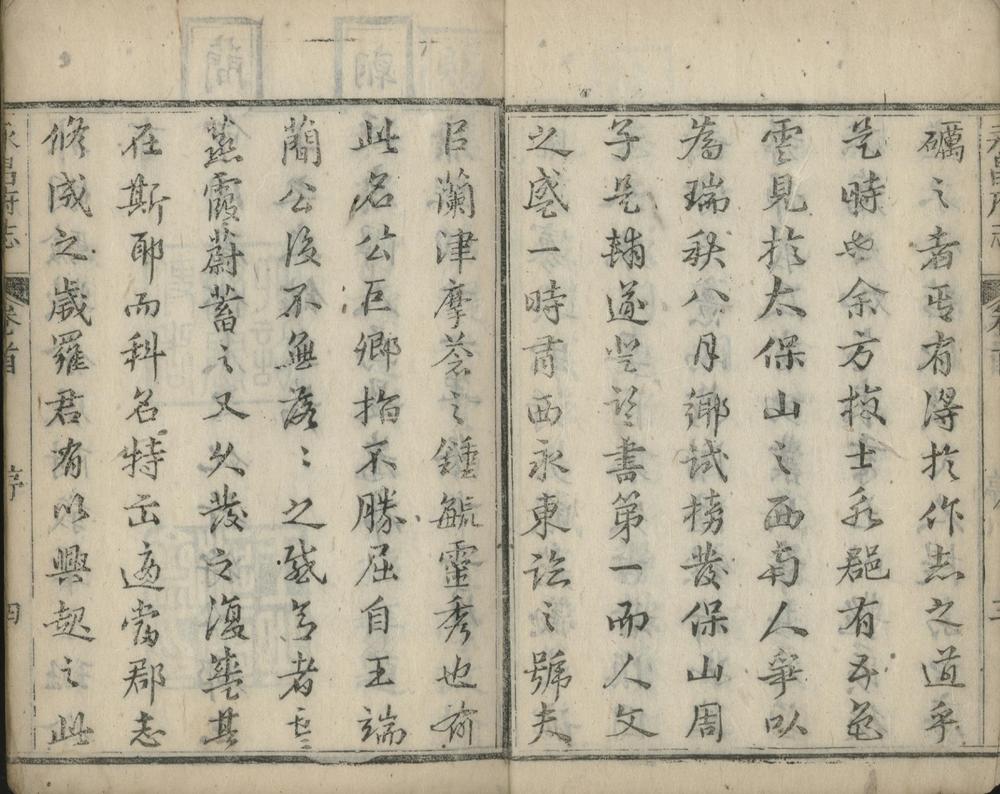 礪之者再有得於作志之道乎
是時也余方掄士永郡有五色
雲見於太保山之西南人爭以
為瑞秋八月鄉試榜發保山周
子是輔遂以詩書第一而人文
之盛一時有西永東訟之號夫
巨蘭津摩蒼之鍾毓靈秀也前
此名公巨卿指不勝屈自王端
簡公後不無落落之感言者云
蒸霞蔚蓄之又久發之復盛其
在斯耶而科名特出適當郡志
修成之歲羅君有以興起之此
永昌府志 卷首 序 四